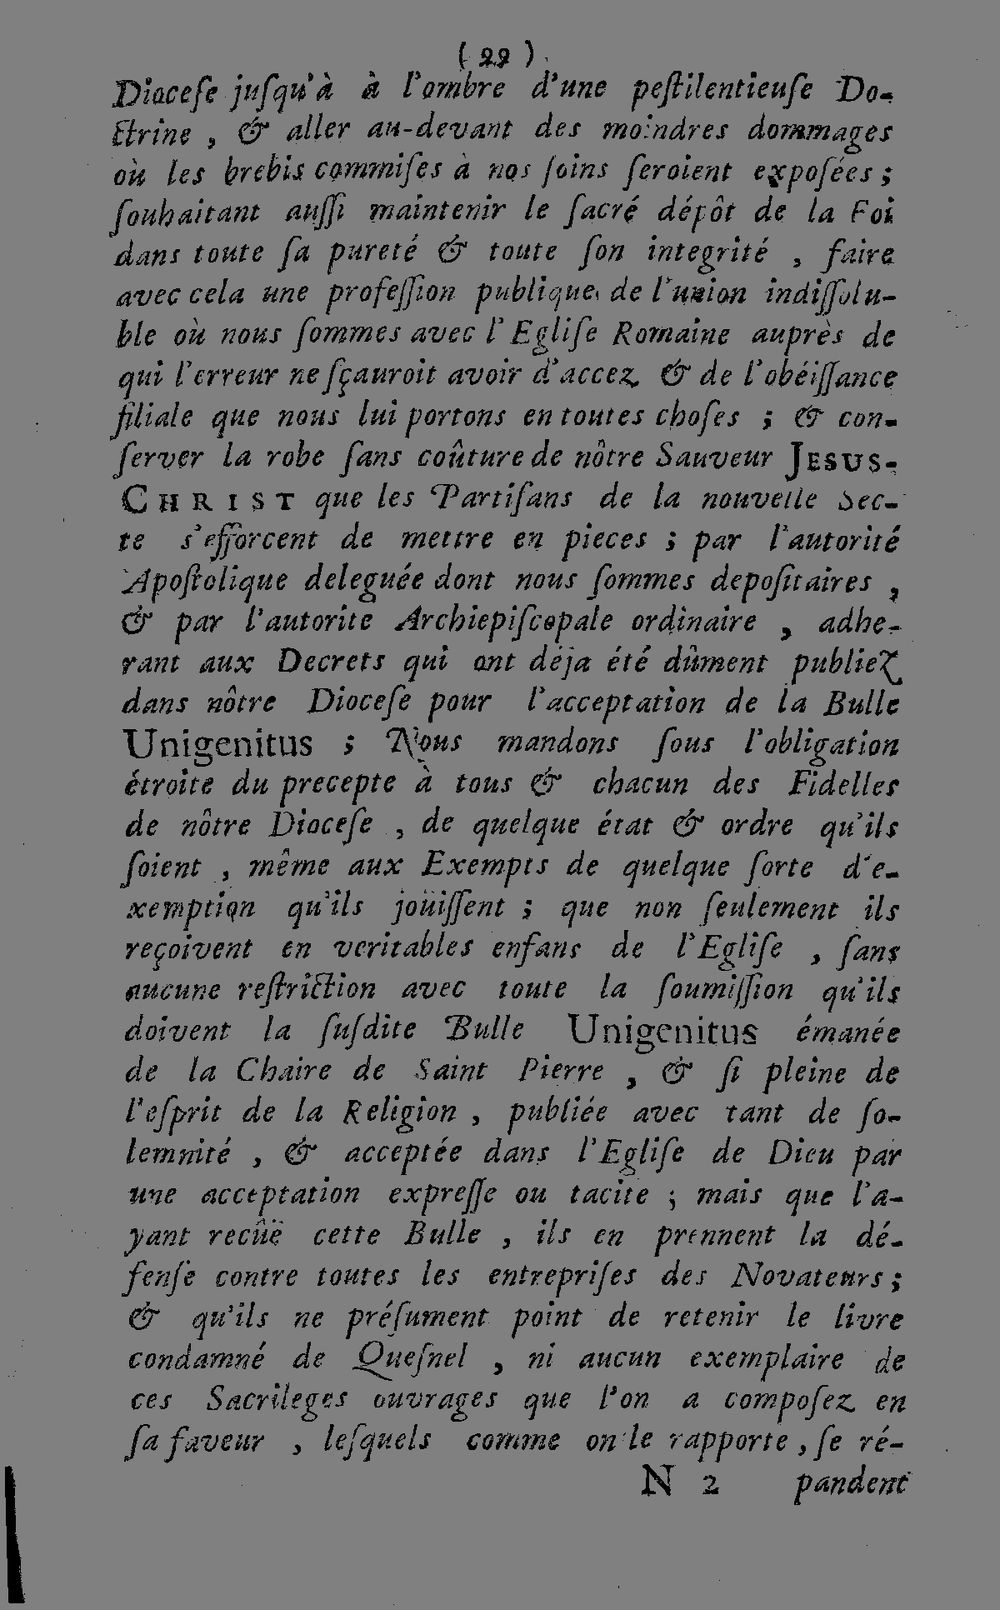 ( 22 )
Diocese juſqu'à à l'ombre d'une peſtilentieuſe Do-
ctrine , & aller au-devant des moindres dommages
où les brebis commiſes à nos ſoins ſeroient expoſées ;
ſouhaitant auſſi maintenir le ſacré dépôt de la Foi
dans toute ſa pureté & toute ſon integrité , faire
avec cela une profeſſion publique de l'union indiſſolu-
ble où nous ſommes avec l'Egliſe Romaine auprès de
qui l'erreur ne ſçauroit avoir d'accez & de l'obéiſſance
filiale que nous lui portons en toutes choſes ; & con-
ſerver la robe ſans coûture de nôtre Sauveur JESUS-
CHRIST que les Partiſans de la nouvelle Sec-
te s'efforcent de mettre en pieces ; par l'autorité
Apoſtolique deleguée dont nous ſommes depoſitaires ,
& par l'autorite Archiepiſcopale ordinaire , adhe-
rant aux Decrets qui ont déja été dûment publiez
dans nôtre Dioceſe pour l'acceptation de la Bulle
Unigenitus ; Nous mandons ſous l'obligation
étroite du precepte à tous & chacun des Fidelles
de nôtre Dioceſe , de quelque état & ordre qu'ils
ſoient , même aux Exempts de quelque ſorte d'e-
xemption qu'ils joüiſſent ; que non ſeulement ils
reçoivent en veritables enfans de l'Egliſe , ſans
aucune reſtriction avec toute la ſoumiſſion qu'ils
doivent la ſuſdite Bulle Unigenitus émanée
de la Chaire de Saint Pierre , & ſi pleine de
l'eſprit de la Religion , publiée avec tant de ſo-
lemnité , & acceptée dans l'Egliſe de Dieu par
une acceptation expreſſe ou tacite ; mais que l'a-
yant recûë cette Bulle , ils en prennent la dé-
fenſe contre toutes les entrepriſes des Novateurs ;
& qu'ils ne préſument point de retenir le livre
condamné de Queſnel , ni aucun exemplaire de
ces Sacrileges ouvrages que l'on a compoſez en
ſa faveur , leſquels comme on le rapporte , ſe ré-
N 2 pandent